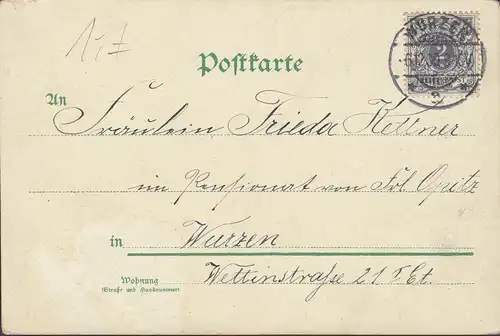 WURZEN
2
Postkarte
An
Fräulein Frieda Kellner
im Pensionat von Frl. Opitz
in Wurzen
Wohnung
(Straße und Hausnummer)
Wettinstraße 21 I. Et.